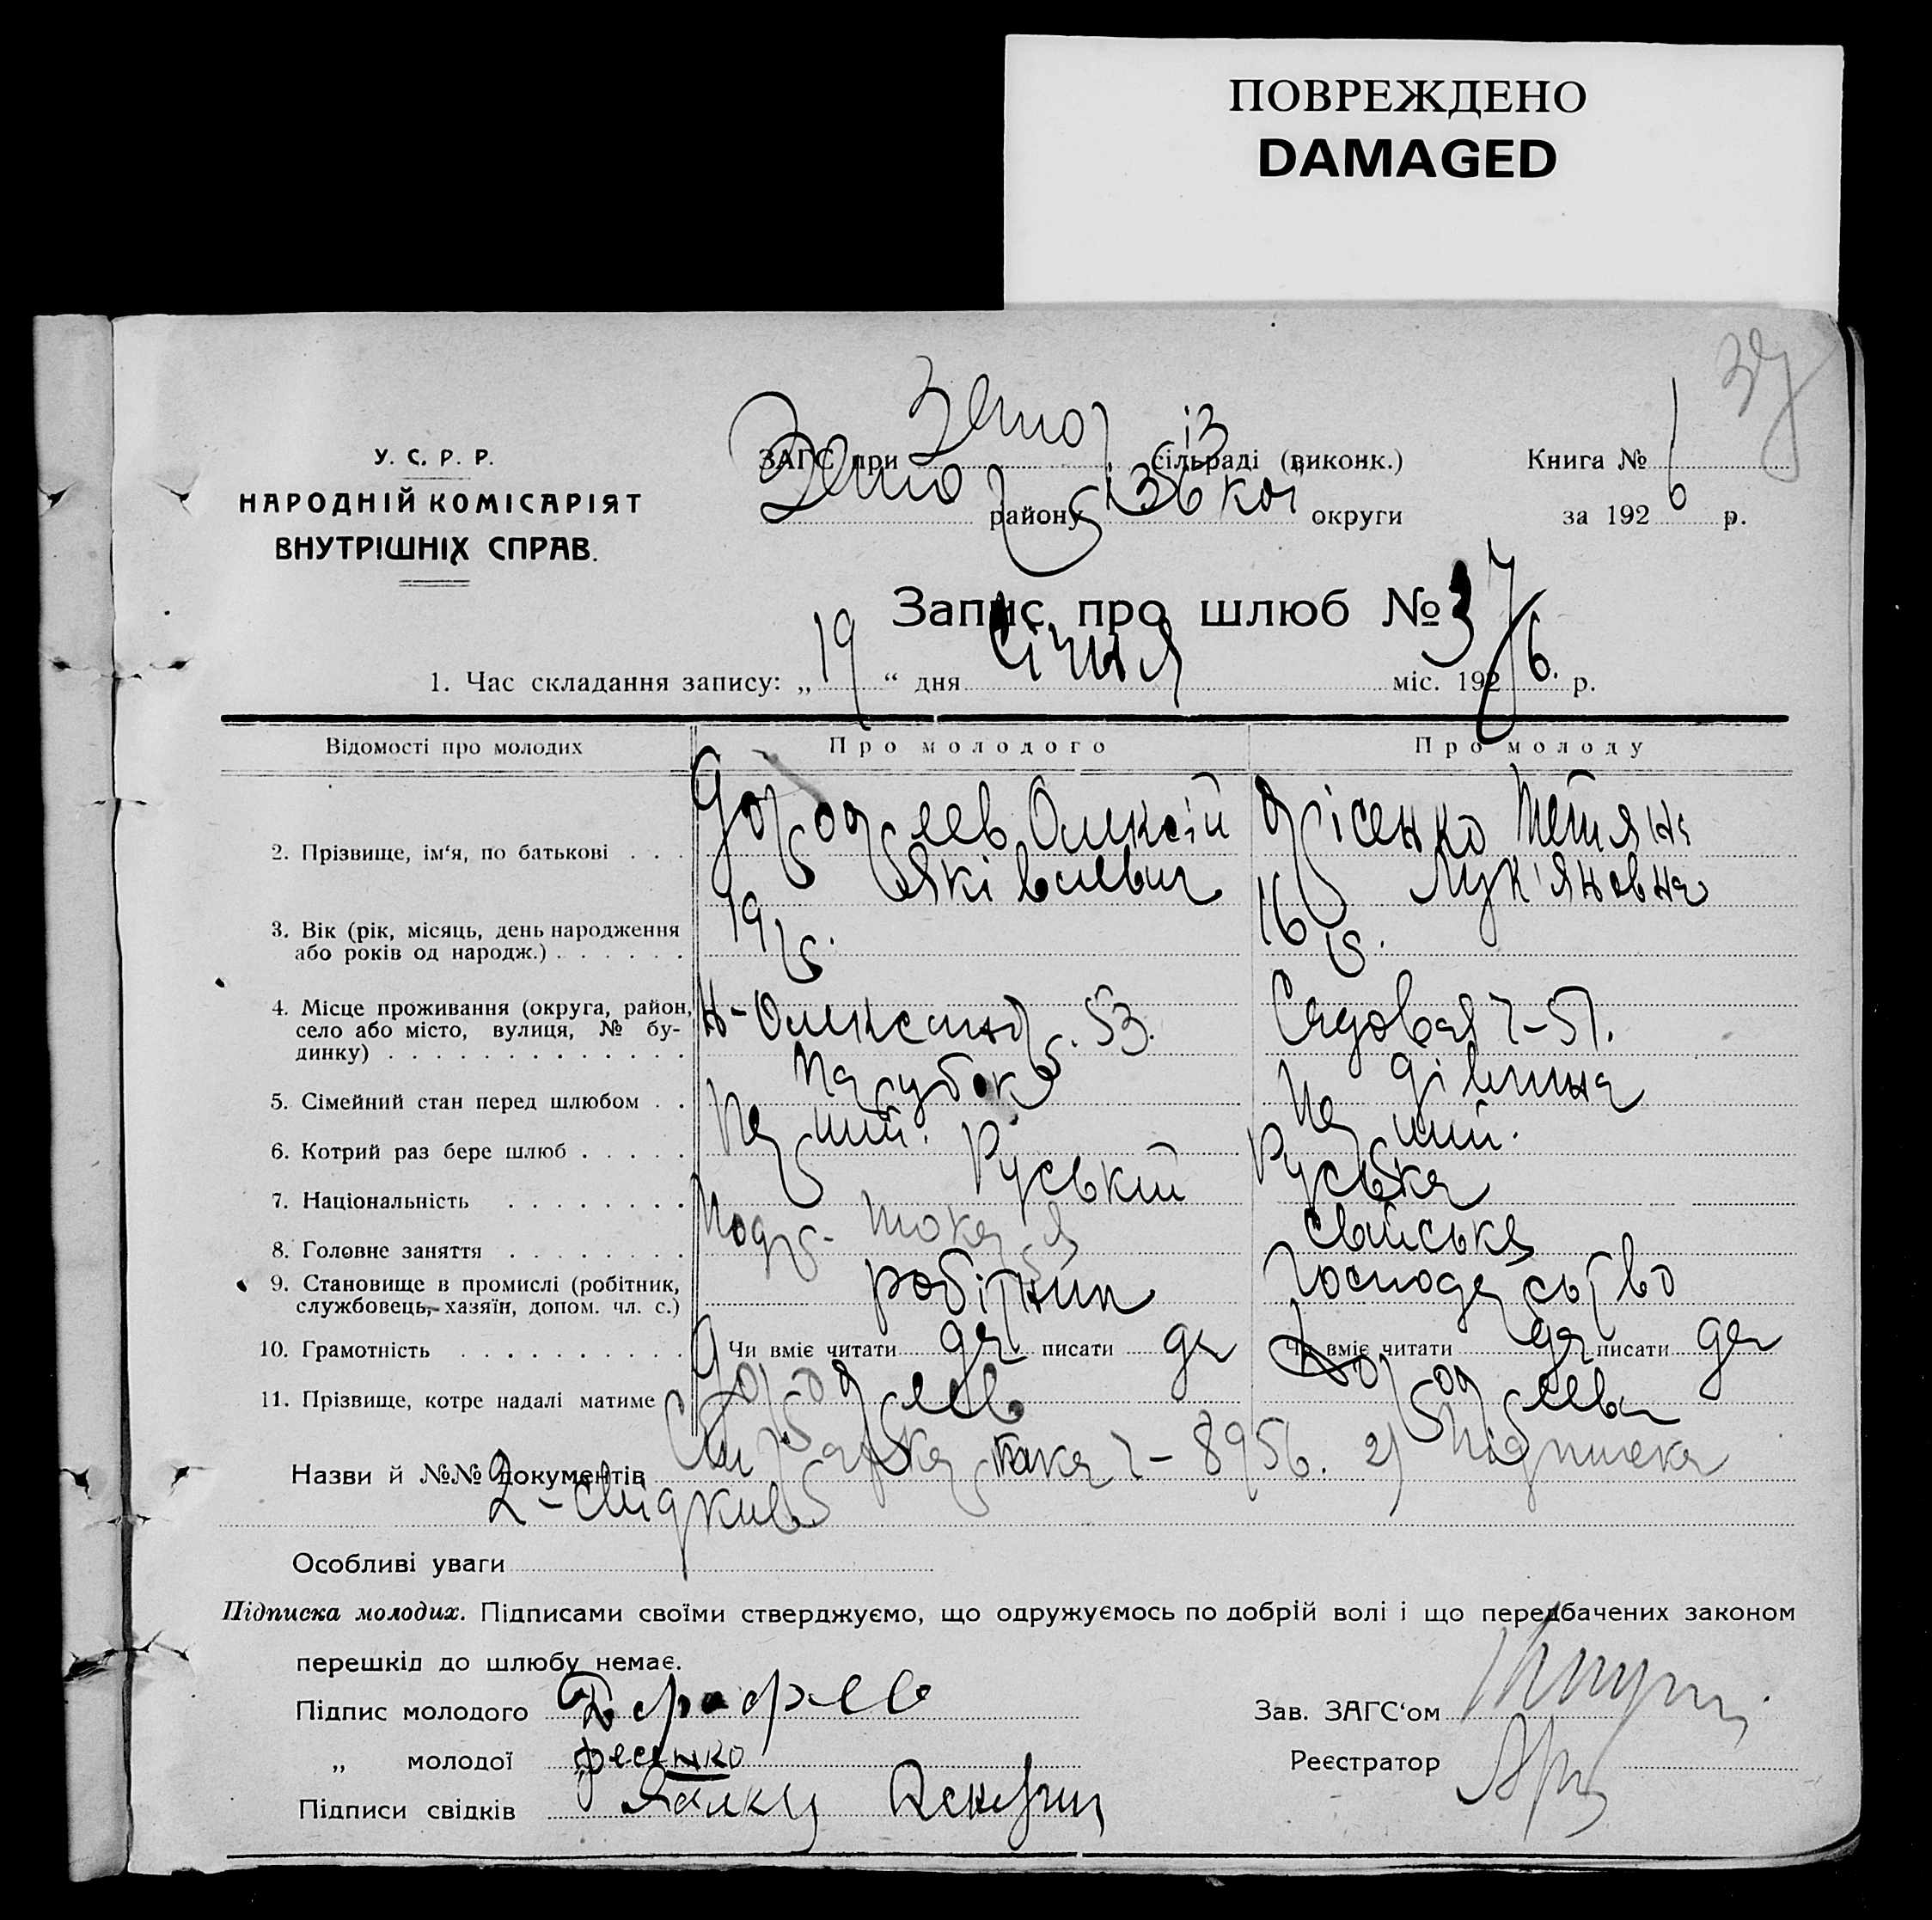 ПОВРЕЖДЕНО
DAMAGED
37
У. С. Р. Р.
НАРОДНІЙ КОМІСАРІЯТ
ВНУТРІШНІХ СПРАВ.
ЗАГС при сільраді (виконк.)
району округи
Книга №
за 1926 р.
Запис про шлюб № 37
1. Час складання запису: „19“ дня Січня міс. 1926. р.
Відомості про молодих Про молодого Про молоду
2. Прізвище, ім‘я, по батькові . . . Олексій Тетяна
Яківлевич Лук'яновна
3. Вік (рік, місяць, день народження
або років од народж.) . . . . . . 19 р. 16 р.
4. Місце проживання (округа, район,
село або місто, вулиця, № бу-
динку) . . . . . . . . . . . . . Н-Олександр. 53. Садовая 7-51.
5. Сімейний стан перед шлюбом . . Парубок Дівчина
6. Котрий раз бере шлюб . . . . . Перший. Перший.
7. Національність . . . . . . . . Руський Руська
8. Головне заняття . . . . . . . . Подр. токаря свійське
9. Становище в промислі (робітник,
службовець, хазяїн, допом. чл. с.) робітник господарство
10. Грамотність . . . . . . . . . . Чи вміє читати да писати да Чи вміє читати да писати да
11. Прізвище, котре надалі матиме
Назви й №№ документів 8956. 2) Підписка
2-свидків
Особливі уваги
Підписка молодих. Підписами своїми стверджуємо, що одружуємось по добрій волі і що передбачених законом
перешкід до шлюбу немає.
Підпис молодого
Зав. ЗАГС‘ом
„ молодої Фесенко
Реєстратор
Підписи свідків